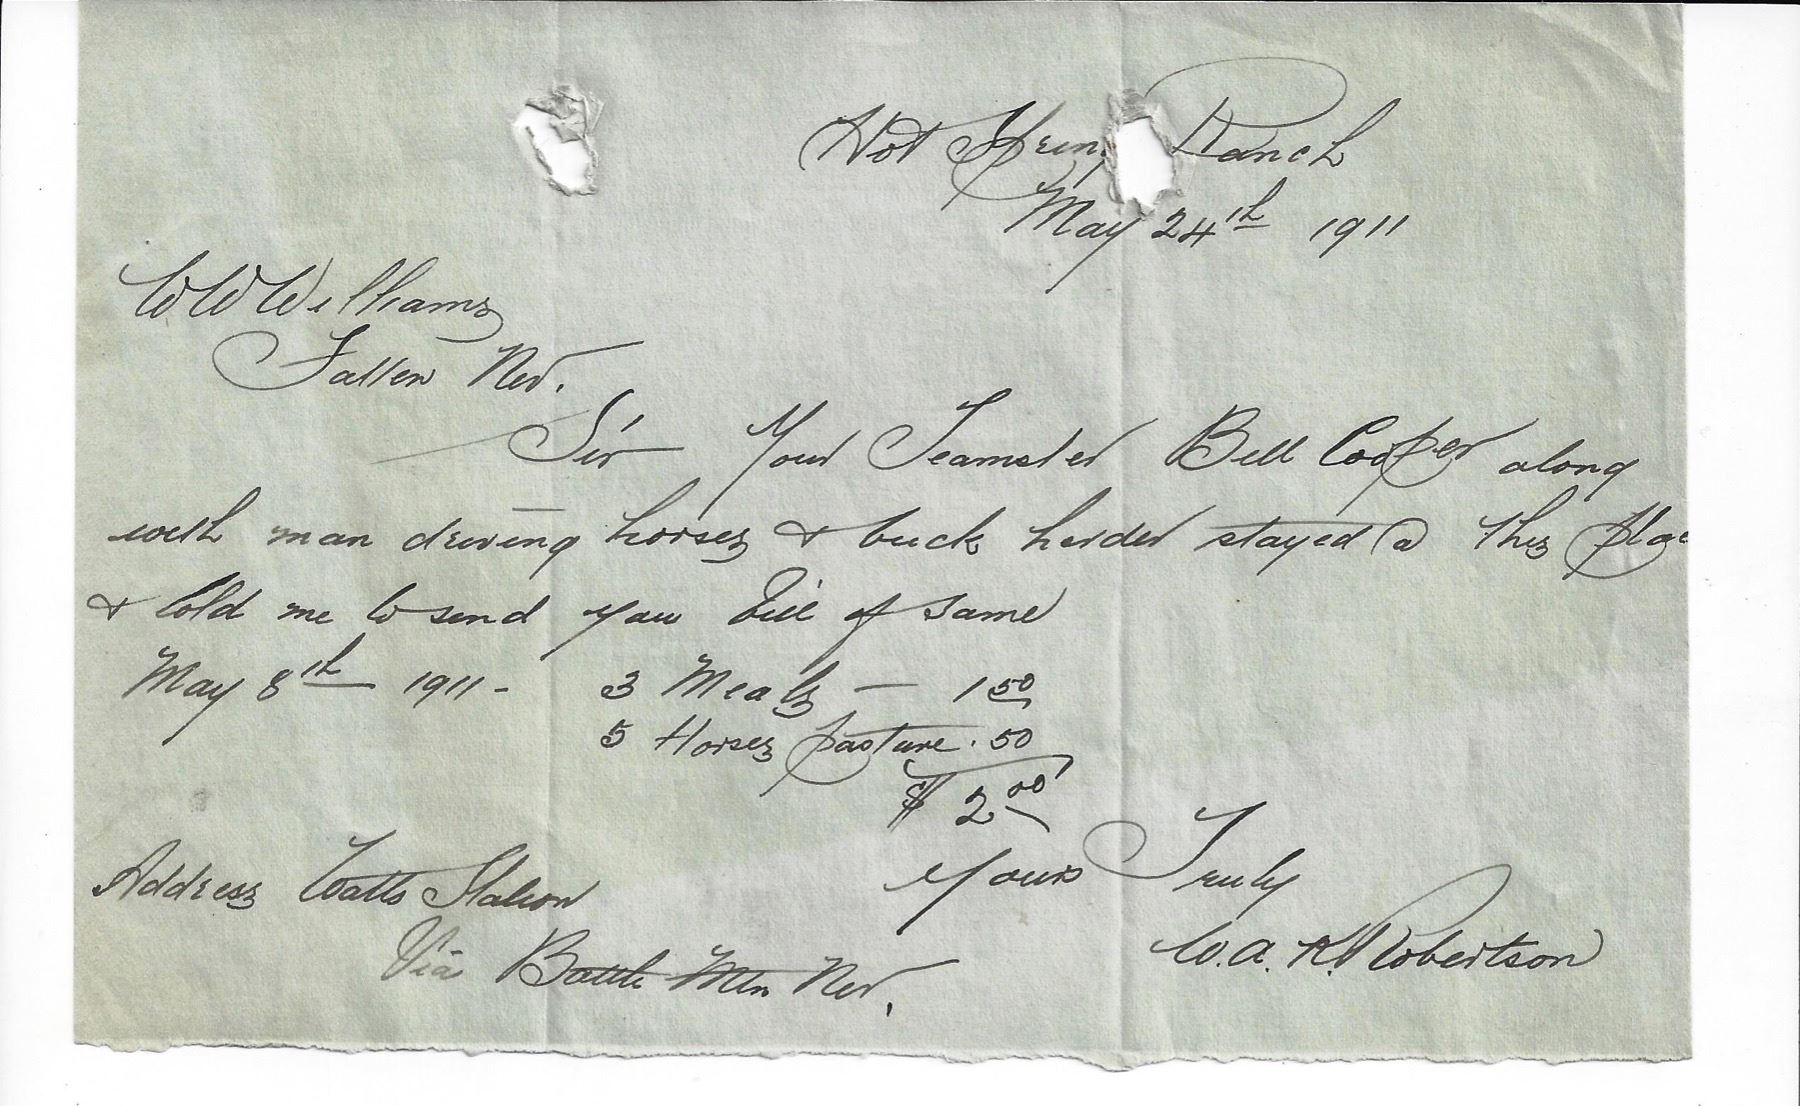 Hot Spring Ranch
May 24th 1911
W W Williams
Fallen Nev.
Sir Your Teamster Bill Cooper along
with man driving horses & buck herder stayed @ this place
& told me to send you bill of same
May 8th 1911 - 3 Meals — 1 50
5 Horses pasture . 50
$ 2 00
Yours Truly
Address Watts Station
W. A. R. Robertson
Via Battle Mtn Nev.